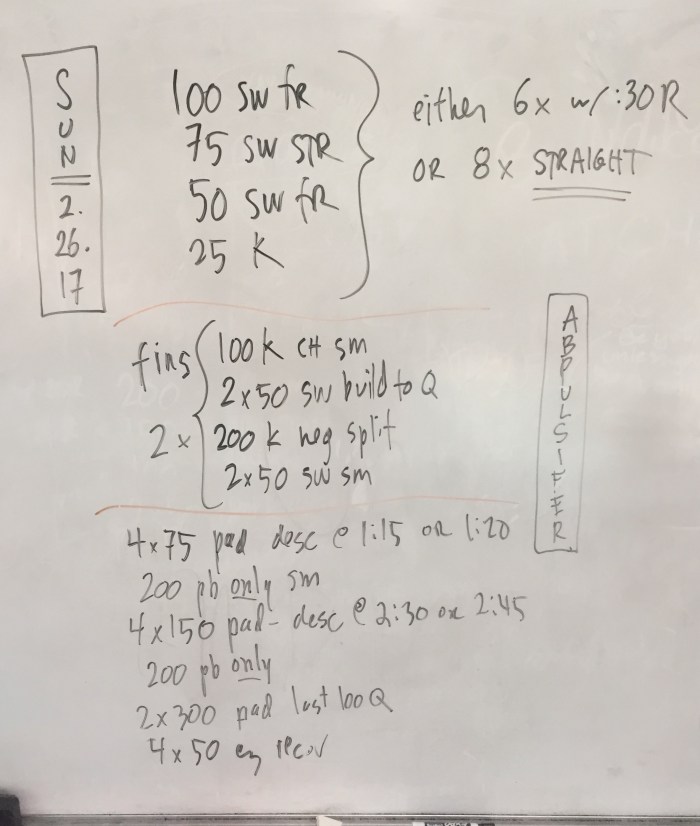 SUN
2.
26.
17
100 SW fR
75 SW STR
50 SW fR
25 K
either 6x w/ :30 R
OR 8x STRAIGHT
fins
2x
100 K CH sm
2x50 SW build to Q
200 K neg split
2x50 SW sm
ABPULSIFER
4x75 pad desc @ 1:15 OR 1:20
200 pb only sm
4x150 pad - desc @ 2:30 OR 2:45
200 pb only
2x300 pad last 100 Q
4x50 ez recov